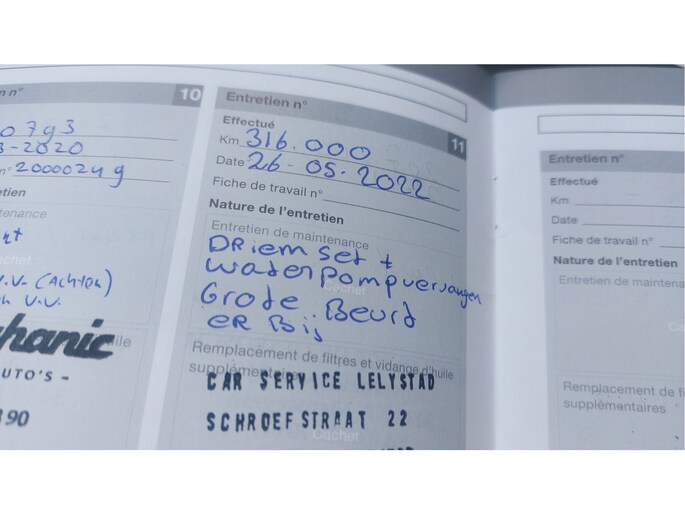 n n° 10
0793
3-2020
n° 2000024 9
etien
tenance
V.V. (Achter)
V.V.
hanic
UTO'S -
390
Entretien n° 11
Effectué
Km 316.000
Date 26-05-2022
Fiche de travail n°
Nature de l'entretien
Entretien de maintenance
DRiem set +
waterpompvervangen
Grote Beurt
eR Bij
Cachet
Remplacement de filtres et vidange d'huile
supplémentaires
CAR SERVICE LELYSTAD
SCHROEFSTRAAT 22
Cachet
Entretien n°
Effectué
Km
Date
Fiche de travail n°
Nature de l'entretien
Entretien de maintena
Cachet
Remplacement de fi
supplémentaires